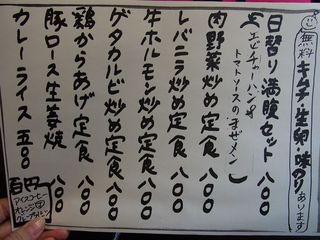 無料 キムチ・生卵・味のりあります
日替り満腹セット 八〇〇
エビチャーハン&
トマトソースのまぜメン
肉野菜炒め定食 八〇〇
レバニラ炒め定食 八〇〇
牛ホルモン炒め定食 八〇〇
ゲタカルビ炒め定食 八〇〇
鶏からあげ定食 八〇〇
豚ロース生姜焼 八〇〇
カレーライス 五〇〇
百円
アイスコーヒー
オレンジ